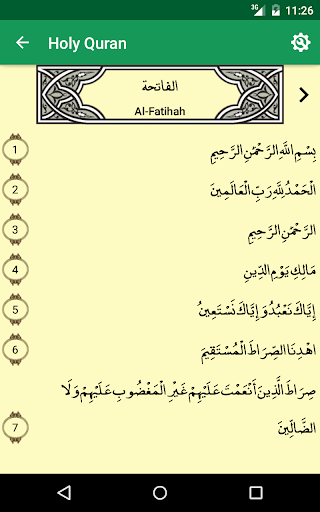 3G 11:26
Holy Quran
الفاتحة
Al-Fatihah
1 بِسْمِ اللَّهِ الرَّحْمَٰنِ الرَّحِيمِ
2 الْحَمْدُ لِلَّهِ رَبِّ الْعَالَمِينَ
3 الرَّحْمَٰنِ الرَّحِيمِ
4 مَالِكِ يَوْمِ الدِّينِ
5 إِيَّاكَ نَعْبُدُ وَإِيَّاكَ نَسْتَعِينُ
6 اهْدِنَا الصِّرَاطَ الْمُسْتَقِيمَ
صِرَاطَ الَّذِينَ أَنْعَمْتَ عَلَيْهِمْ غَيْرِ الْمَغْضُوبِ عَلَيْهِمْ وَلَا
7 الضَّالِّينَ